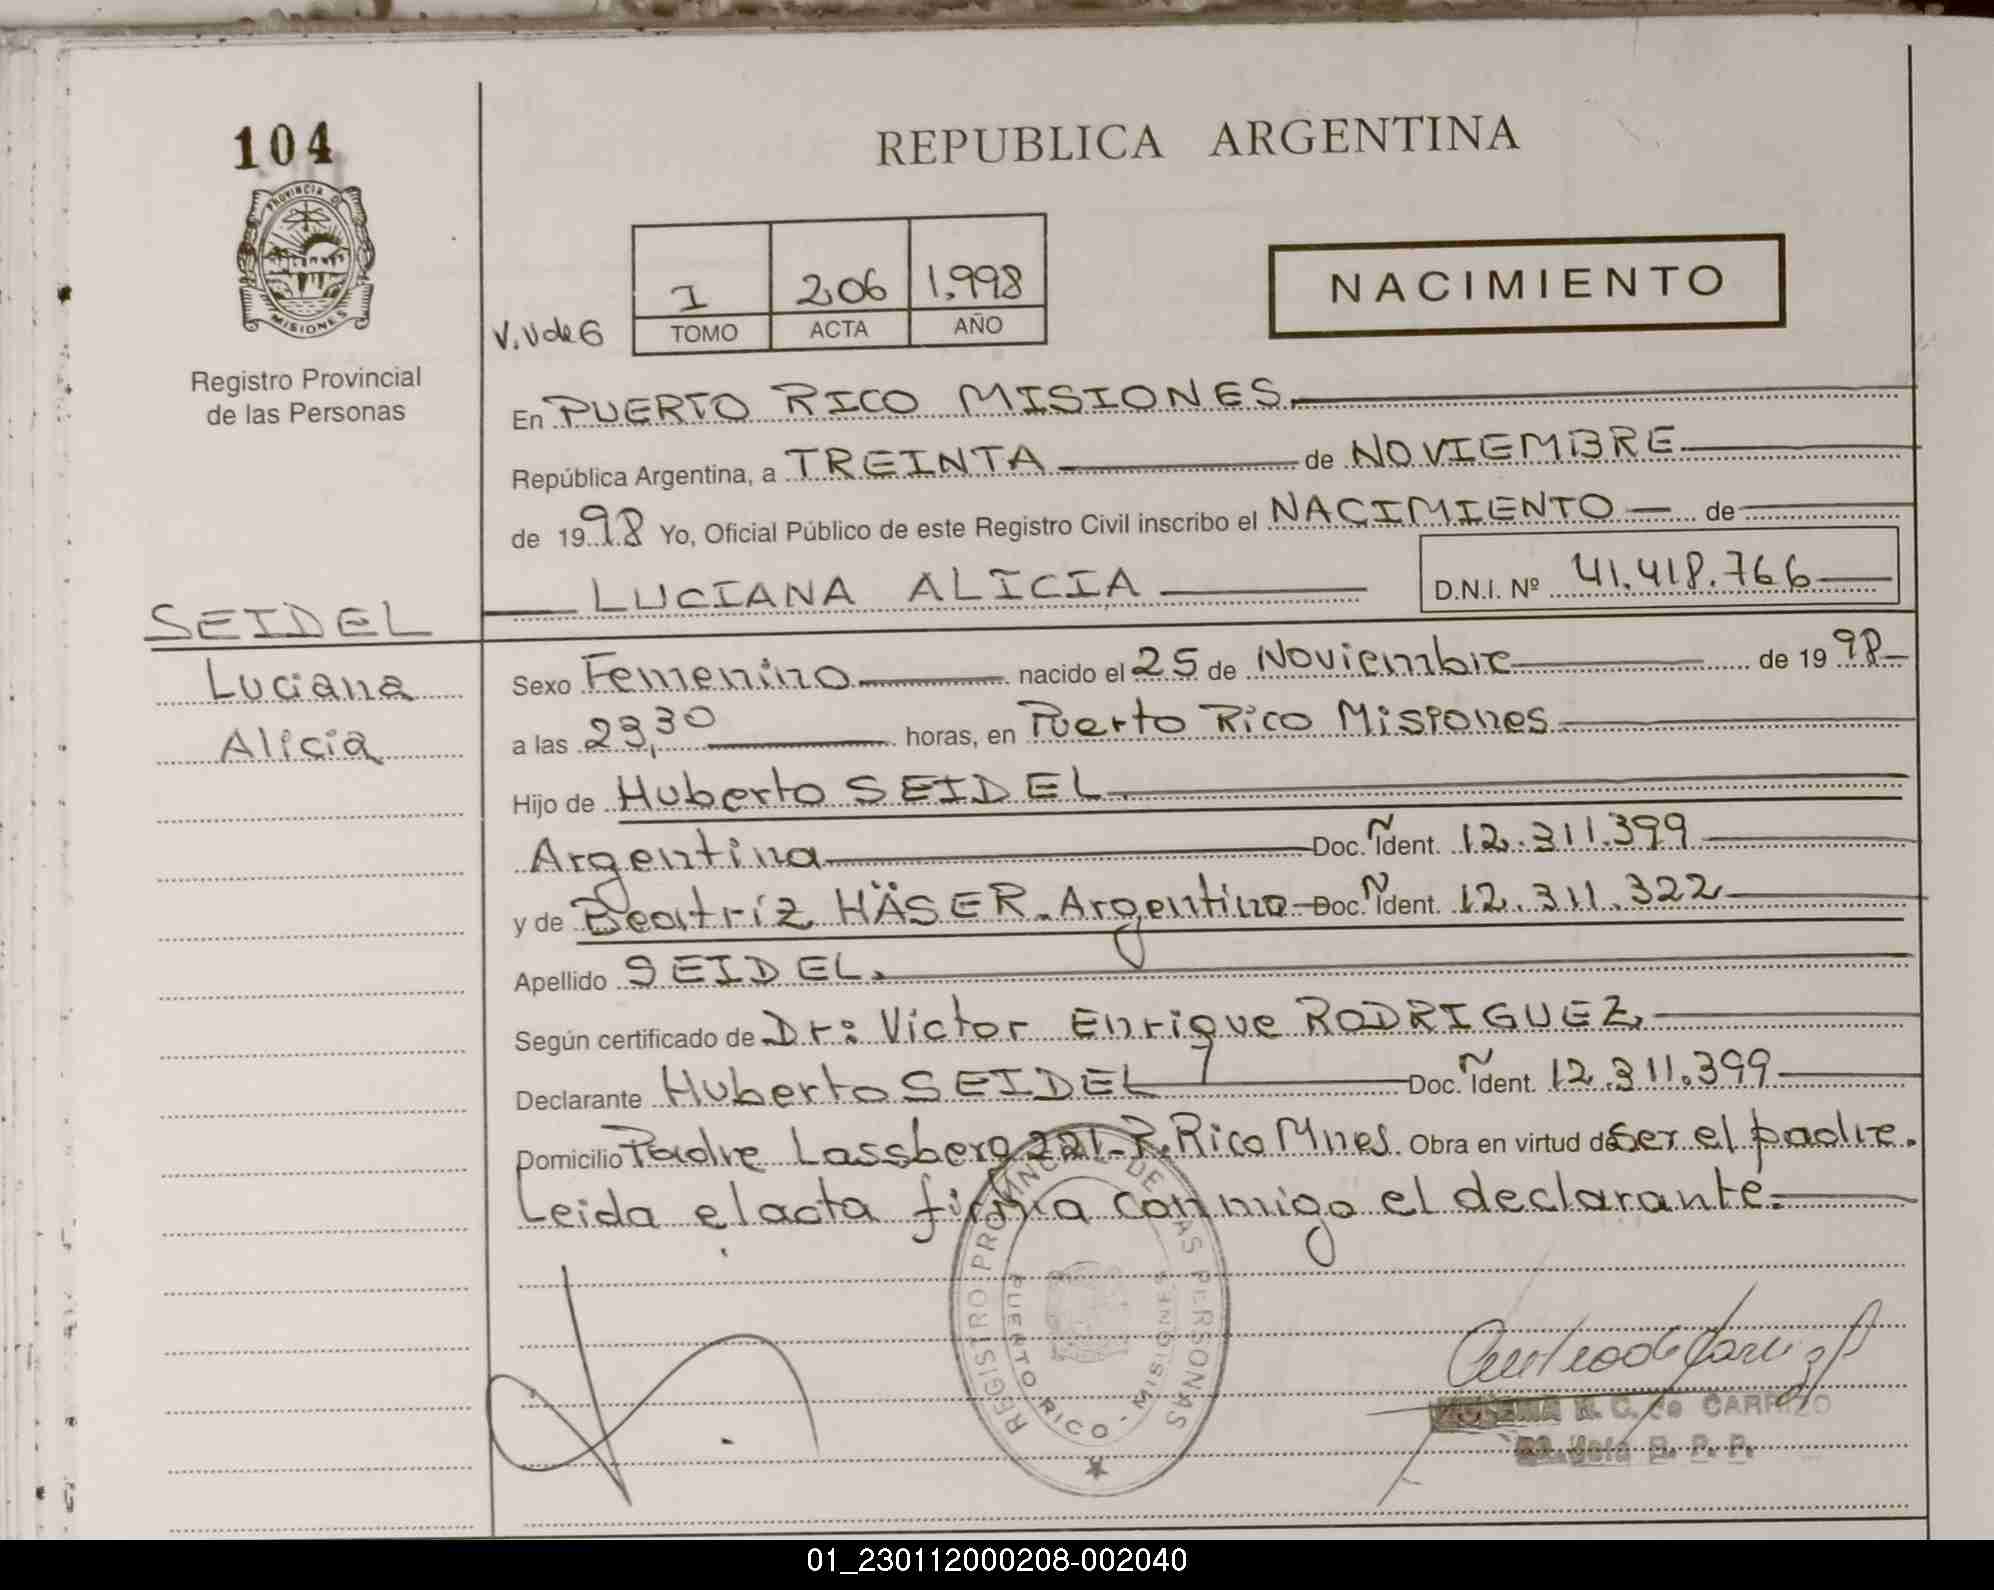 104
PROVINCIA DE
MISIONES
Registro Provincial
de las Personas
REPUBLICA ARGENTINA
I 206 1.998
TOMO ACTA AÑO
NACIMIENTO
En PUERTO RICO MISIONES.
República Argentina, a TREINTA de NOVIEMBRE
de 1998 Yo, Oficial Público de este Registro Civil inscribo el NACIMIENTO de
LUCIANA ALICIA D.N.I. Nº 41.418.766
SEIDEL
Luciana
Alicia
Sexo Femenino nacido el 25 de Noviembre de 1998
a las 23,30 horas, en Puerto Rico Misiones
Hijo de Huberto SEIDEL
Argentina Doc. Ñ Ident. 12.311.399
y de Beatríz HÄSER. Argentina Doc. Ñ Ident. 12.311.322
Apellido SEIDEL.
Según certificado de Dr: Victor Enrique RODRIGUEZ,
Declarante Huberto SEIDEL Doc. Ñ Ident. 12.311.399
Domicilio Padre Lassberg 221- P. Rico Mnes. Obra en virtud de Ser el padre.
Leida el acta firma conmigo el declarante.
REGISTRO PROVINCIAL DE LAS PERSONAS
PUERTO RICO - MISIONES
C. de CARRIZO
01_230112000208-002040